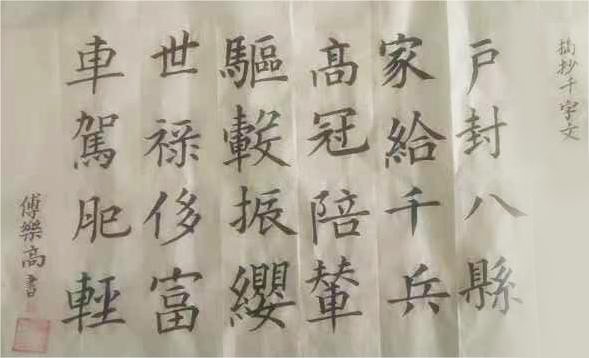 摘抄千字文
戶封八縣
家給千兵
高冠陪輦
驅轂振纓
世祿侈富
車駕肥輕
傅樂高書